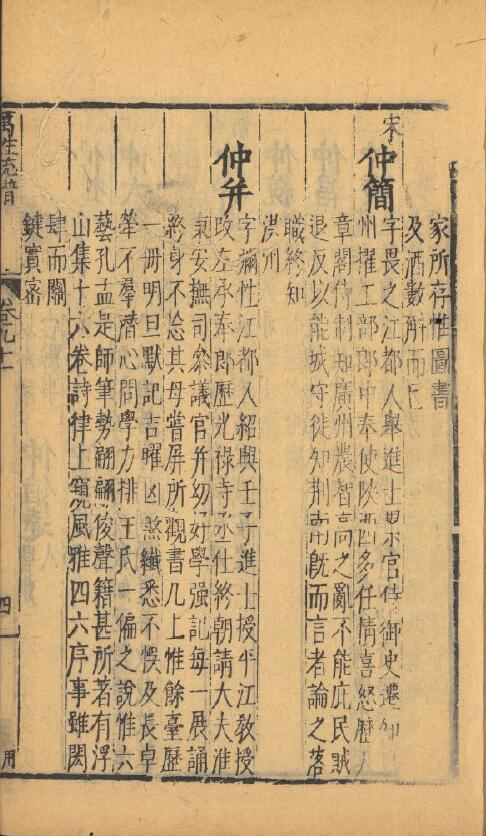 家所存惟圖書
及酒數斛而已
宋
仲簡
字畏之江都人舉進士累官侍御史遷知
州擢工部郎中奉使陝西多任情喜怒歷天
章閣待制知廣州儂智高之亂不能庇民賊
退反以能城守徙知荆南旣而言者論之落
職終知
洪州
仲幷
字彌性江都人紹興壬子進士授平江敎授
改左承奉郎歷光祿寺丞仕終朝請大夫淮
東安撫司叅議官幷幼好學强記每一展誦
終身不忘其母嘗屏所觀書几上惟餘臺歷
一冊明旦默記吉曜凶煞纖悉不悞及長卓
犖不羣潛心問學力排王氏一偏之說惟六
藝孔孟是師筆勢翩翩俊聲籍甚所著有浮
山集十六卷詩律上窺風雅四六序事雖閎
肆而關
鍵實宻
萬姓統譜
卷九十
四
用